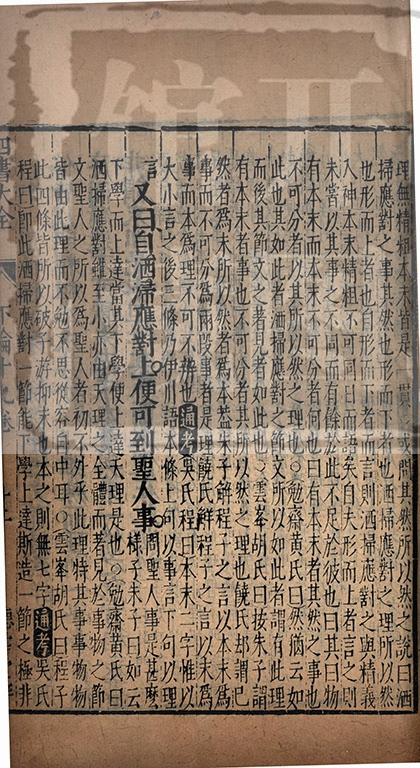 理無精粗本末皆是一貫○或問其然所以然之說曰洒
掃應對之事其然也形而下者也洒掃應對之理所以然
也形而上者也自形而下者而言則洒掃應對之與精義
入神本末精粗不可同日而語矣自夫形而上者言之則
未嘗以其事之不同而有餘於此不足於彼也曰其曰物
有本末而本末不可分者何也曰有本末者其然之事也
不可分者以其所以然之理也○勉齋黃氏曰然猶云如
此也其如此者洒掃應對之節文所以如此者謂有此理
而後其節文之著見者如此也○雲峯胡氏曰按朱子謂
有本末者事也不可分者其所以然之理也饒氏却謂已
然者為末所以然者為本蓋朱子解程子之言以本末為
事而不可分為兩段事者是理饒氏解程子之言以末為
事而本為理不可不辨也通考吳氏程曰本末二字惟以
大小言之後三條乃伊川語本條上句以事言下句以理
言
又曰自洒掃應對上便可到聖人事
問聖人事是甚麽
樣子朱子曰如云
下學而上達當其下學便上達天理是也○勉齋黃氏曰
洒掃應對雖至小亦由天理之全體而著見於事物之節
文聖人之所以為聖人者初不外乎此理特其事事物物
皆由此理而不勉不思從容自中耳○雲峯胡氏曰程子
此四條皆所以破子游抑末也本之則無七字通考吳氏
程曰即此洒掃應對一節能下學上達斯造一節之極非
四書大全
下論十九卷